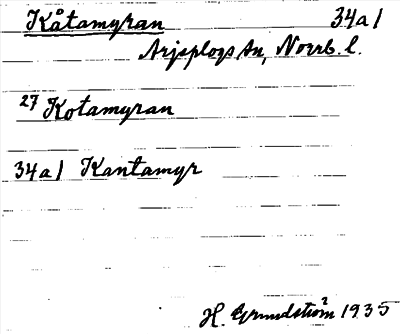 Kåtamyran 34a1
Arjeplogs sn, Norrb. l.
27 Kotamyran
34a1 Kantamyr
H. Grundström 1935